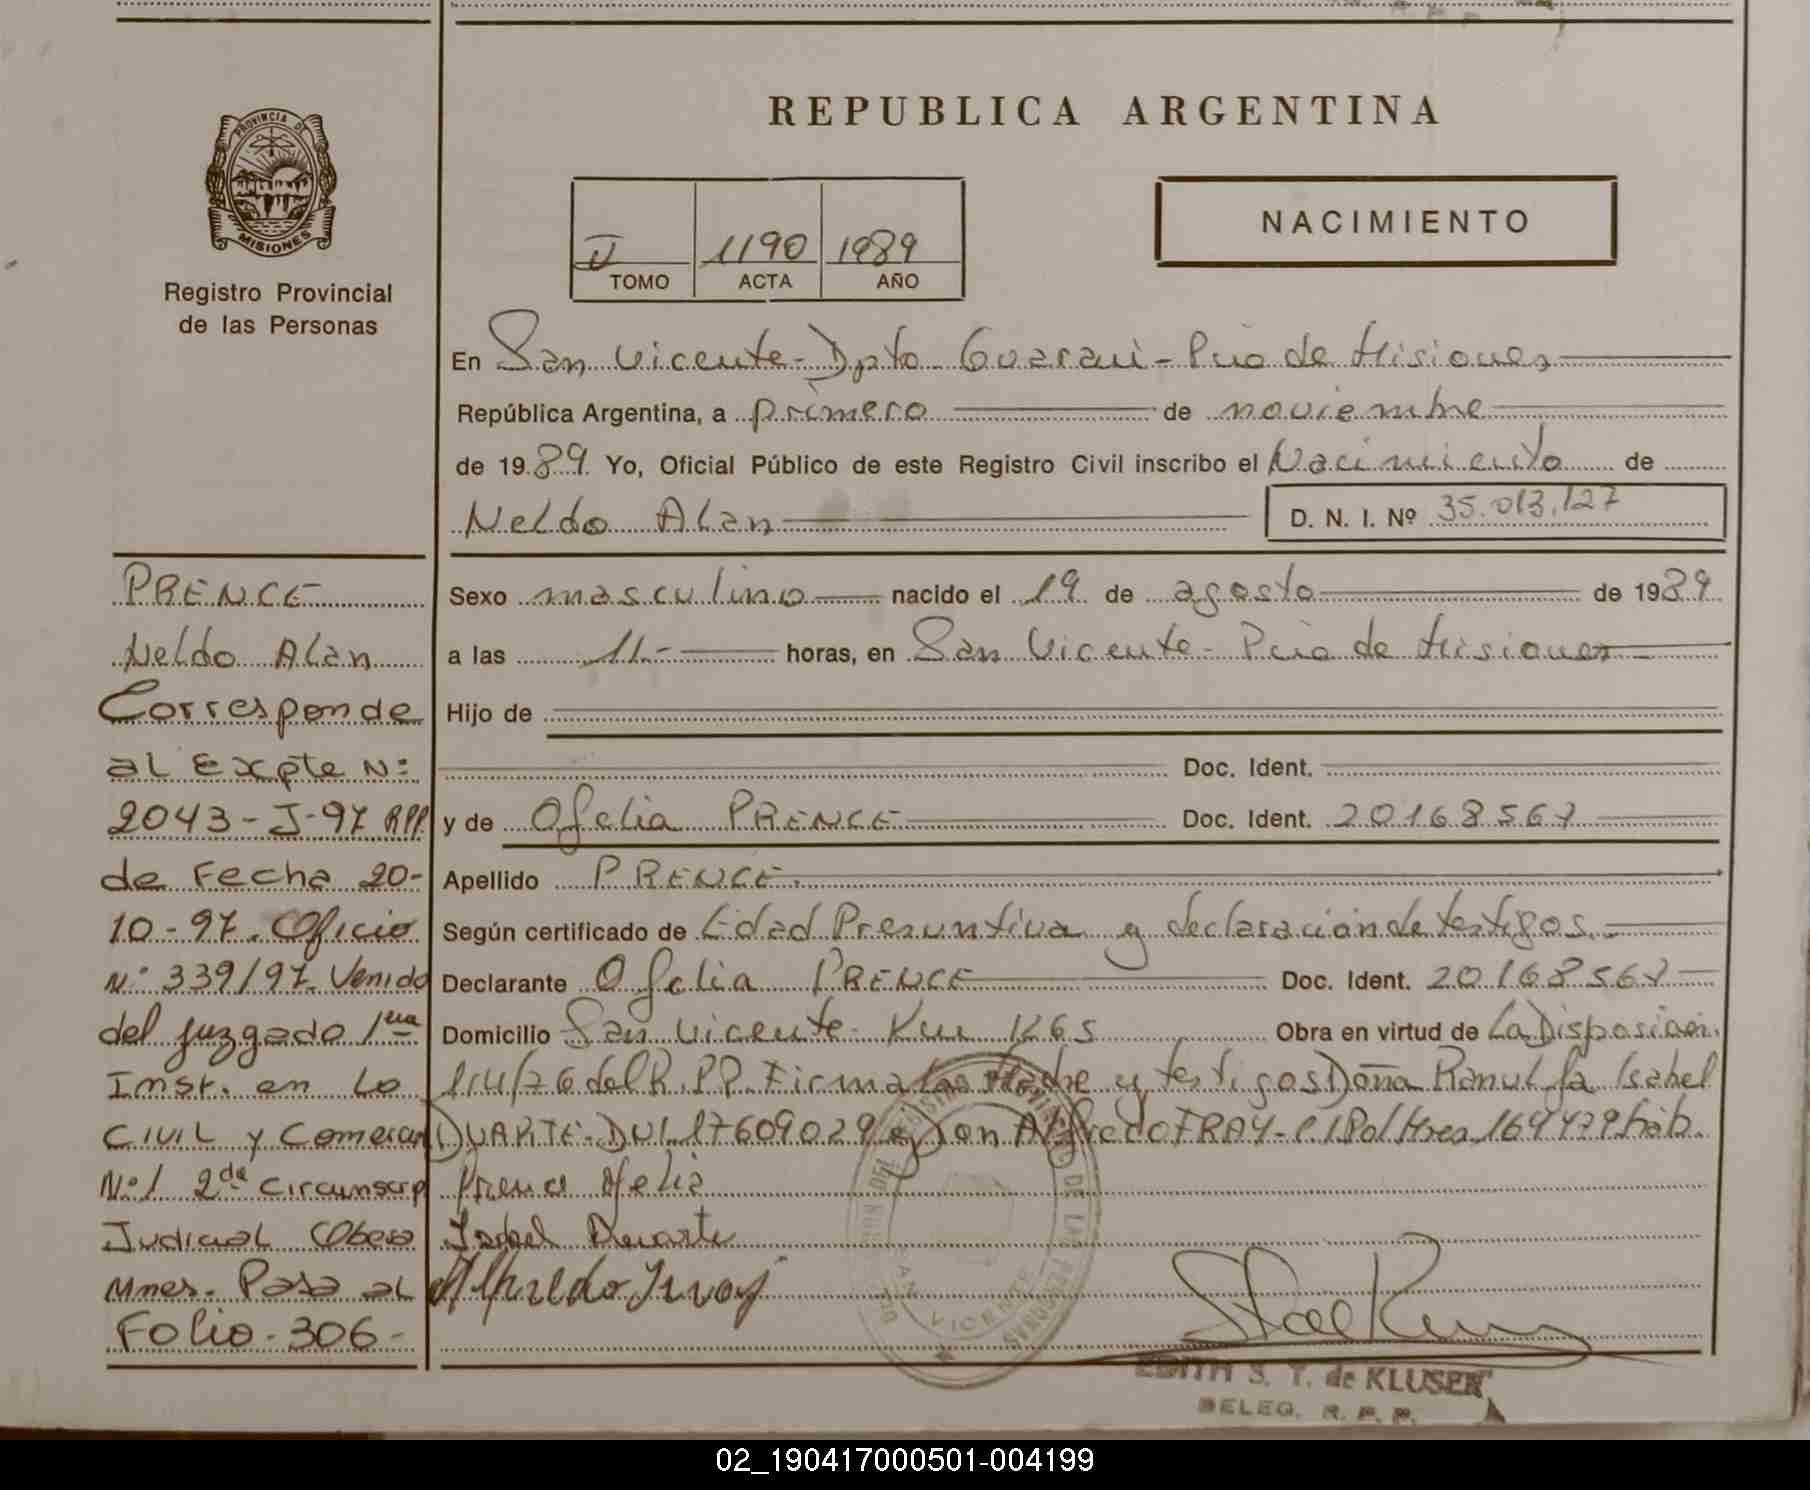 REPUBLICA ARGENTINA
PROVINCIA DE
MISIONES
Registro Provincial
de las Personas
NACIMIENTO
1190 1989
TOMO ACTA AÑO
En San Vicente - Dpto Guarani - Pcia de Misiones
República Argentina, a primero de noviembre
de 1989 Yo, Oficial Público de este Registro Civil inscribo el Nacimiento de
Neldo Alan D. N. I. Nº 35.013.127
PRENCE
Neldo Alan
Corresponde
al Expte Nº
2043-J-97 RPP
de Fecha 20-
10-97. Oficio
Nº 339/97. Venido
del juzgado 1era
Inst. en Lo
CIVIL y Comercial
Nº1 2da Circunscrip
Judicial Obera
Mnes. Pasa al
Folio-306-
Sexo masculino nacido el 19 de agosto de 1989
a las 11.- horas, en San Vicente - Pcia de Misiones
Hijo de
Doc. Ident.
y de Ofelia PRENCE Doc. Ident. 20168567
Apellido PRENCE.
Según certificado de Edad Presuntiva y declaración de testigos.
Declarante Ofelia PRENCE Doc. Ident. 20168567
Domicilio San Vicente - Km 1265 Obra en virtud de La Disposición
114/76 del R.PP. Firma La Madre y testigos Doña Ranulfa Isabel
DUARTE-DNI.17609029 y Don Alfredo FRAY-C.I Pol Mnes 169479
Prence Ofelia
Isabel Duarte
Alfredo
SAN VICENTE
EDITH S. T. de KLUSER
DELEG. R. P. P.
02_190417000501-004199